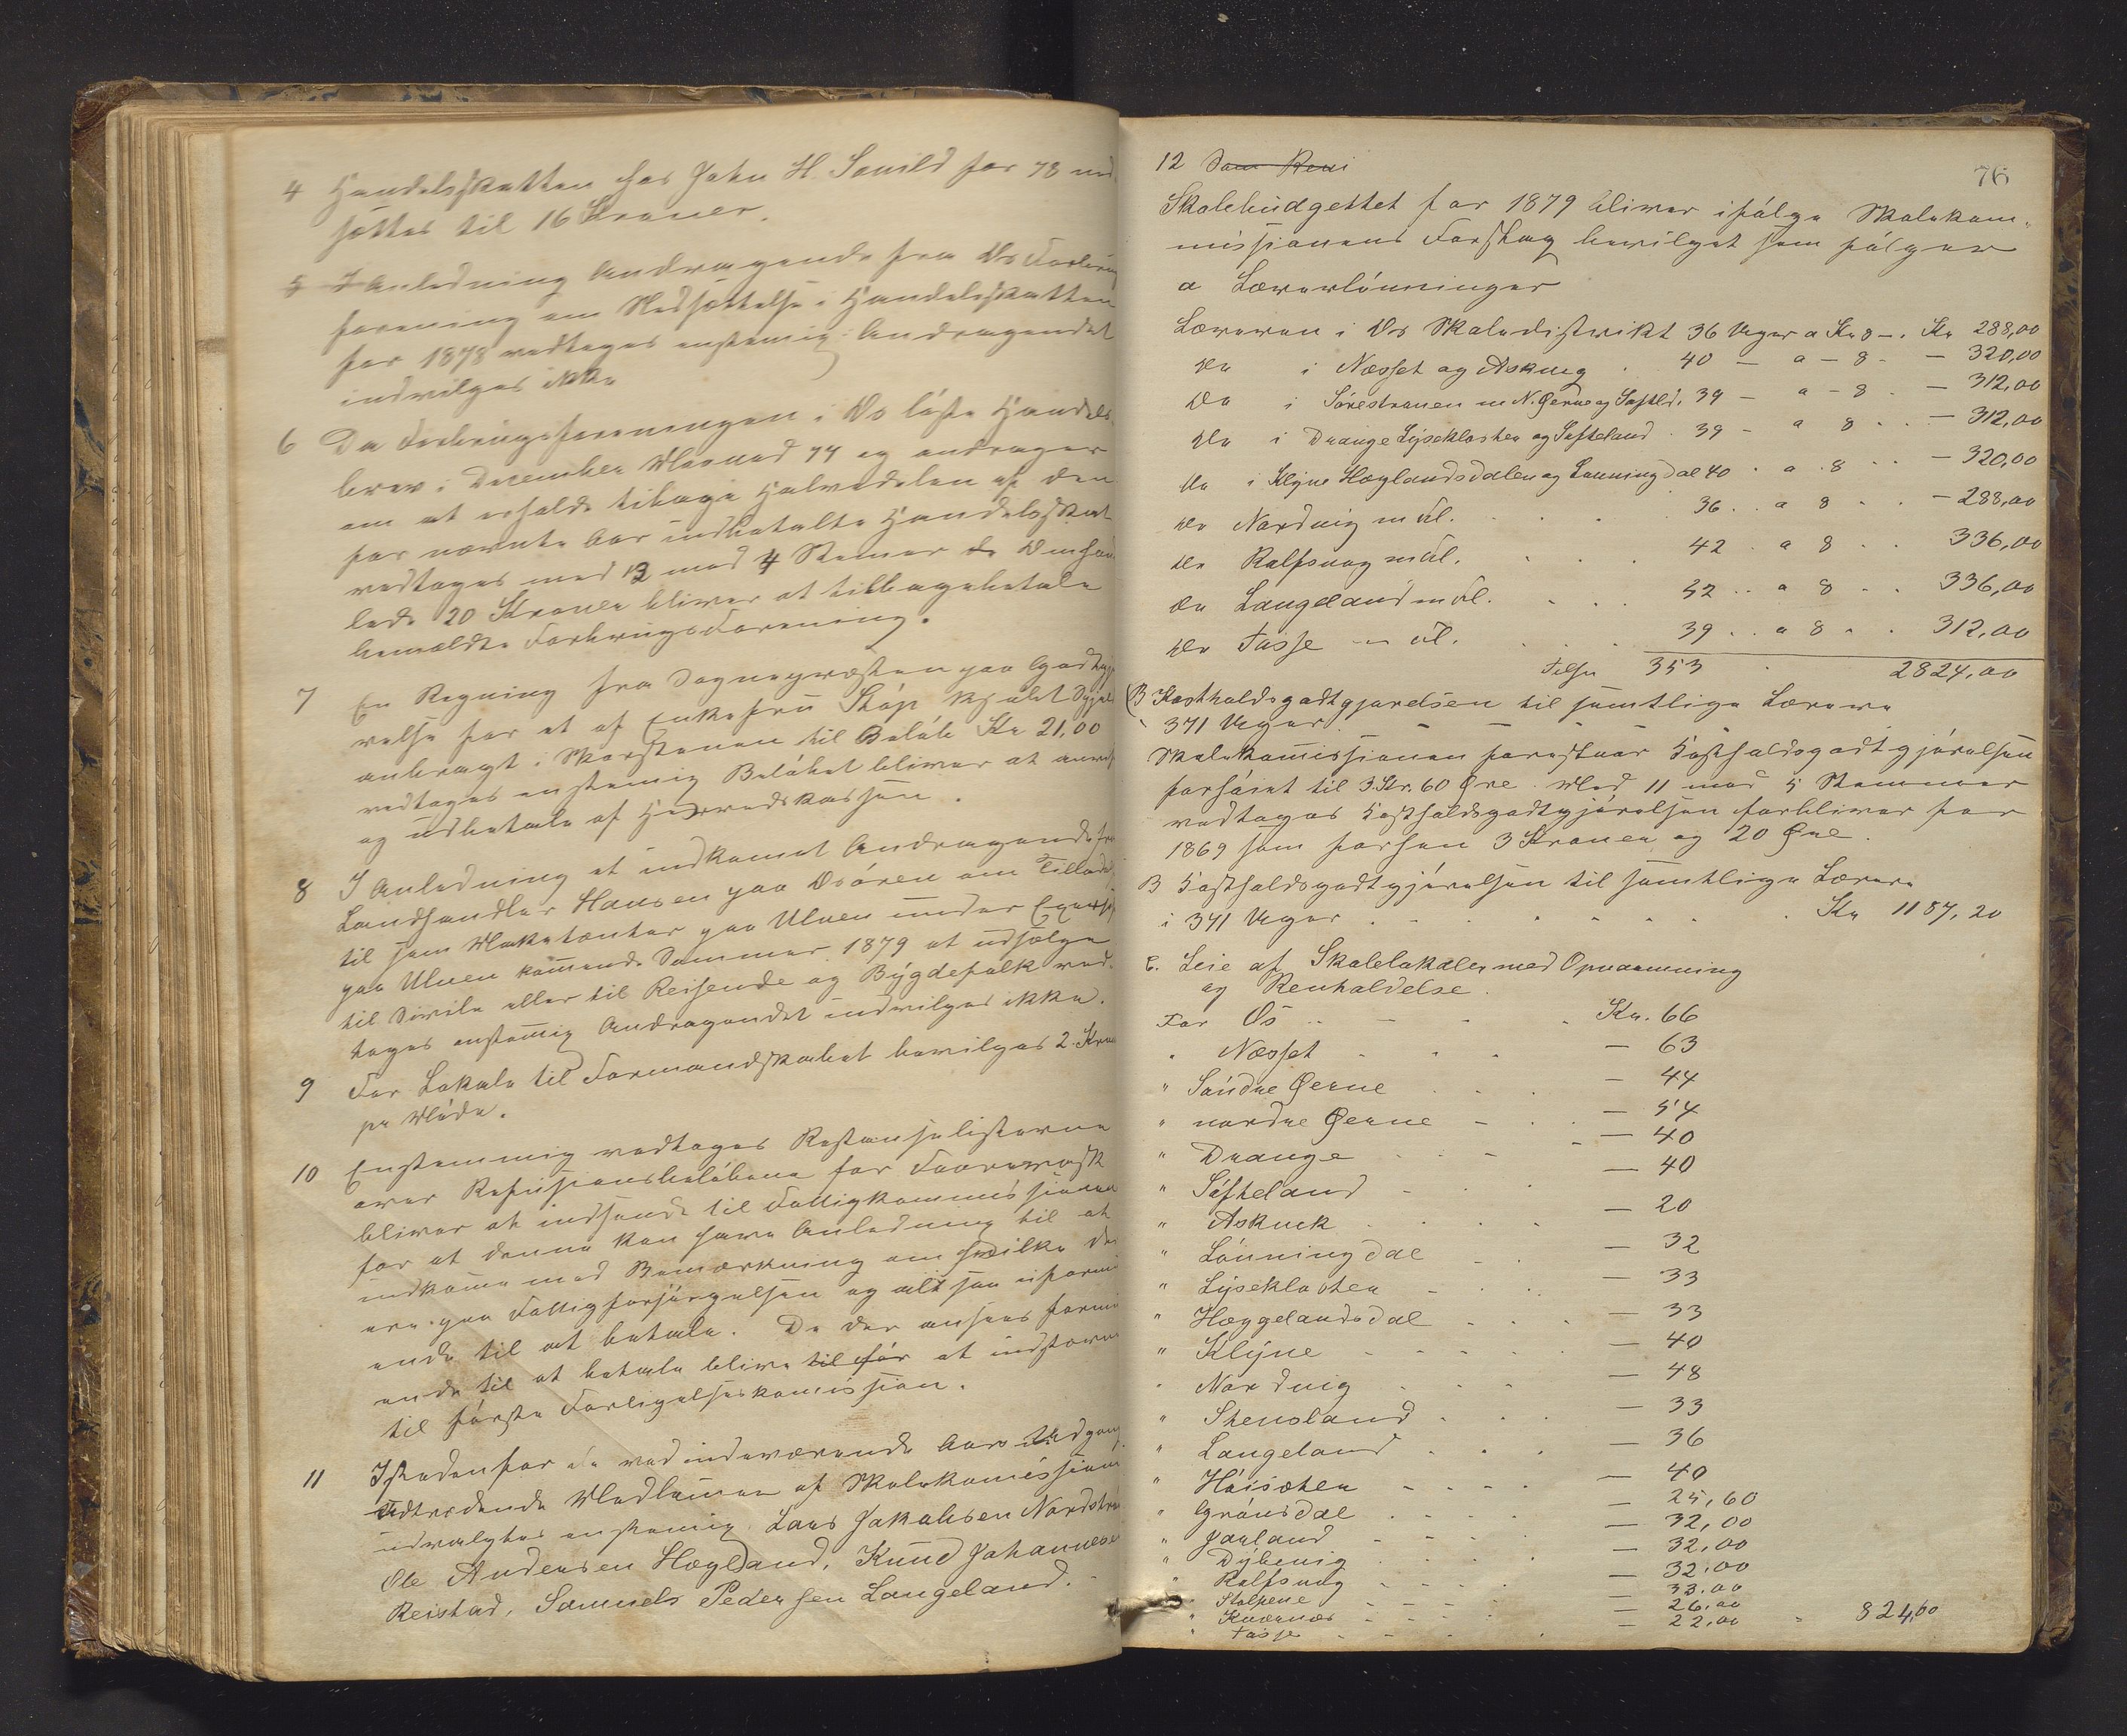 4 Handelsskatten for John H. Souild for 78 ned
sættes til 16 Kroner.
5 I Anledning Andragende fra Os Forbrugs
forening om Nedsættelse i Handelsskatten
for 1878 vedtages enstemig: Andragendet
indvilges ikke
6 Da Forbrugsforeningen i Os løste Handels-
brev i December Maaned 77 og andrager
om at erholde tilbage Halvedelen af den
for nævnte Aar indbetalte Handelsskat
vedtages med 13 mod 4 Stemer de Omhand
lede 20 Kroner bliver at tilbagebetale
bemældte Forbrugsforening.
7 En Regning fra Sognepræsten paa Godtgjø
relse for et af Enkefru
anbragt i Skorstenen til Beløb Kr 21,00
vedtages enstemig Beløbet bliver at anvise
og udbetale af Herredskassen.
8 I Anledning et indkomet Andragende fra
Landhandler Hansen paa Osøren om Tillade
til som Marketænter paa Ulven under Exersis
paa Ulven kommende Sommer 1879 at udsælge
til Sivile eller til Reisende og Bygdefolk ved-
tages enstemig Andragendet indvilges ikke.
9 For Lokale til Formandskabet bevilges 2 Kron
pr Møde.
10 Enstemmig vedtages Restanselisterne
over Refusionsbeløbene for Faarevask
bliver at indsende til Fattigkommissionen
for at denne kan have Anledning til at
indkomme med Bemærkning om hvilke der
ere paa Fattigforsørgelsen og altsaa uformu
ende til at betale. De der ansees formu
ende til at betale blive til før at indstævne
til første Forligelseskomission.
11 Istedenfor de ved indeværende Aars Udgang
udtrædende Medlemer af Skolekomissionen
udvalgtes enstemig Lars Jakobsen Nordstrø
Ole Andersen Hægland, Knud Johannesen
Reistad, Samuels Pedersen Langeland.
76
12 Som Revi
Skolebudgettet for 1879 bliver ifølge Skolekom-
missionens Forslag bevilget som følger
a Lærerlønninger
Læreren i Os Skoledistrikt 36 Uger a Kr 8 -. Kr 288,00
Do i Næsset og Askvig . 40 - a - 8 - - 320,00
Do i Sørestranen m N. Øerne og Søfteld. 39 - a - 8 - - 312,00
Do i Drange Lysekloster og Søfteland . 39 - a 8 . . - 312,00
Do i Klyne Hæglandsdalen og Lønningdal 40 . a . 8 . . - 320,00
Do Nordvig m fl. . . . 36 . . a 8 . . - 288,00
Do Kolfsvog m fl. . . . 42 . a 8 . . 336,00
Do Langeland m fl. . . . 42 . . a 8 . . 336,00
Do Tøsse m fl. . . . 39 . . a 8 . . 312,00
Tilsn 353 . 2824,00
(B Kostholdsgodtgjørelsen til samtlige Lærere
i 341 Uger. - - - - -
Skolekomissionen foreslaar Kostholdsgodtgjørelsen
forhøiet til 3 Kr. 60 Øre. Med 11 mod 5 Stemmer
vedtages Kostholdsgodtgjørelsen forbliver for
1869 som forhen 3 Kroner og 20 Øre.
B Kostholdsgodtgjørelsen til samtlige Lærere
i 341 Uger . . . . . . . . . Kr 1187,20
C. Leie af Skolelokaler med Opvarmning
og Renholdelse.
For Os .. - - . Kr. 66
" Næsset . . . - 63
" Søndre Øerne . . - 44
" nordre Øerne - . . - 54
" Drange . . - - 40
" Søfteland . . . - 40
" Askvik . . . . - 20
" Lønningdal - . - 32
" Lyseklosten - . . - 33
" Hæggelandsdal . . . - 33
" Klyne . . . . - 40
" Nordvig . . . - 48
" Stensland . . . - 33
" Langeland . . . - 36
" Høisæter . . . . - 40
" Grønsdal . . . . - 25,60
" Joeland - - - - - 32,00
" Dybevig . . . . - 32,00
" Kolfsvog - - - - - 32.00
" Stolpene - - - - - 33.00
" Kuvenæs - - - - - 26,00
" Tøsse - - - . - 22,00 - 824,60